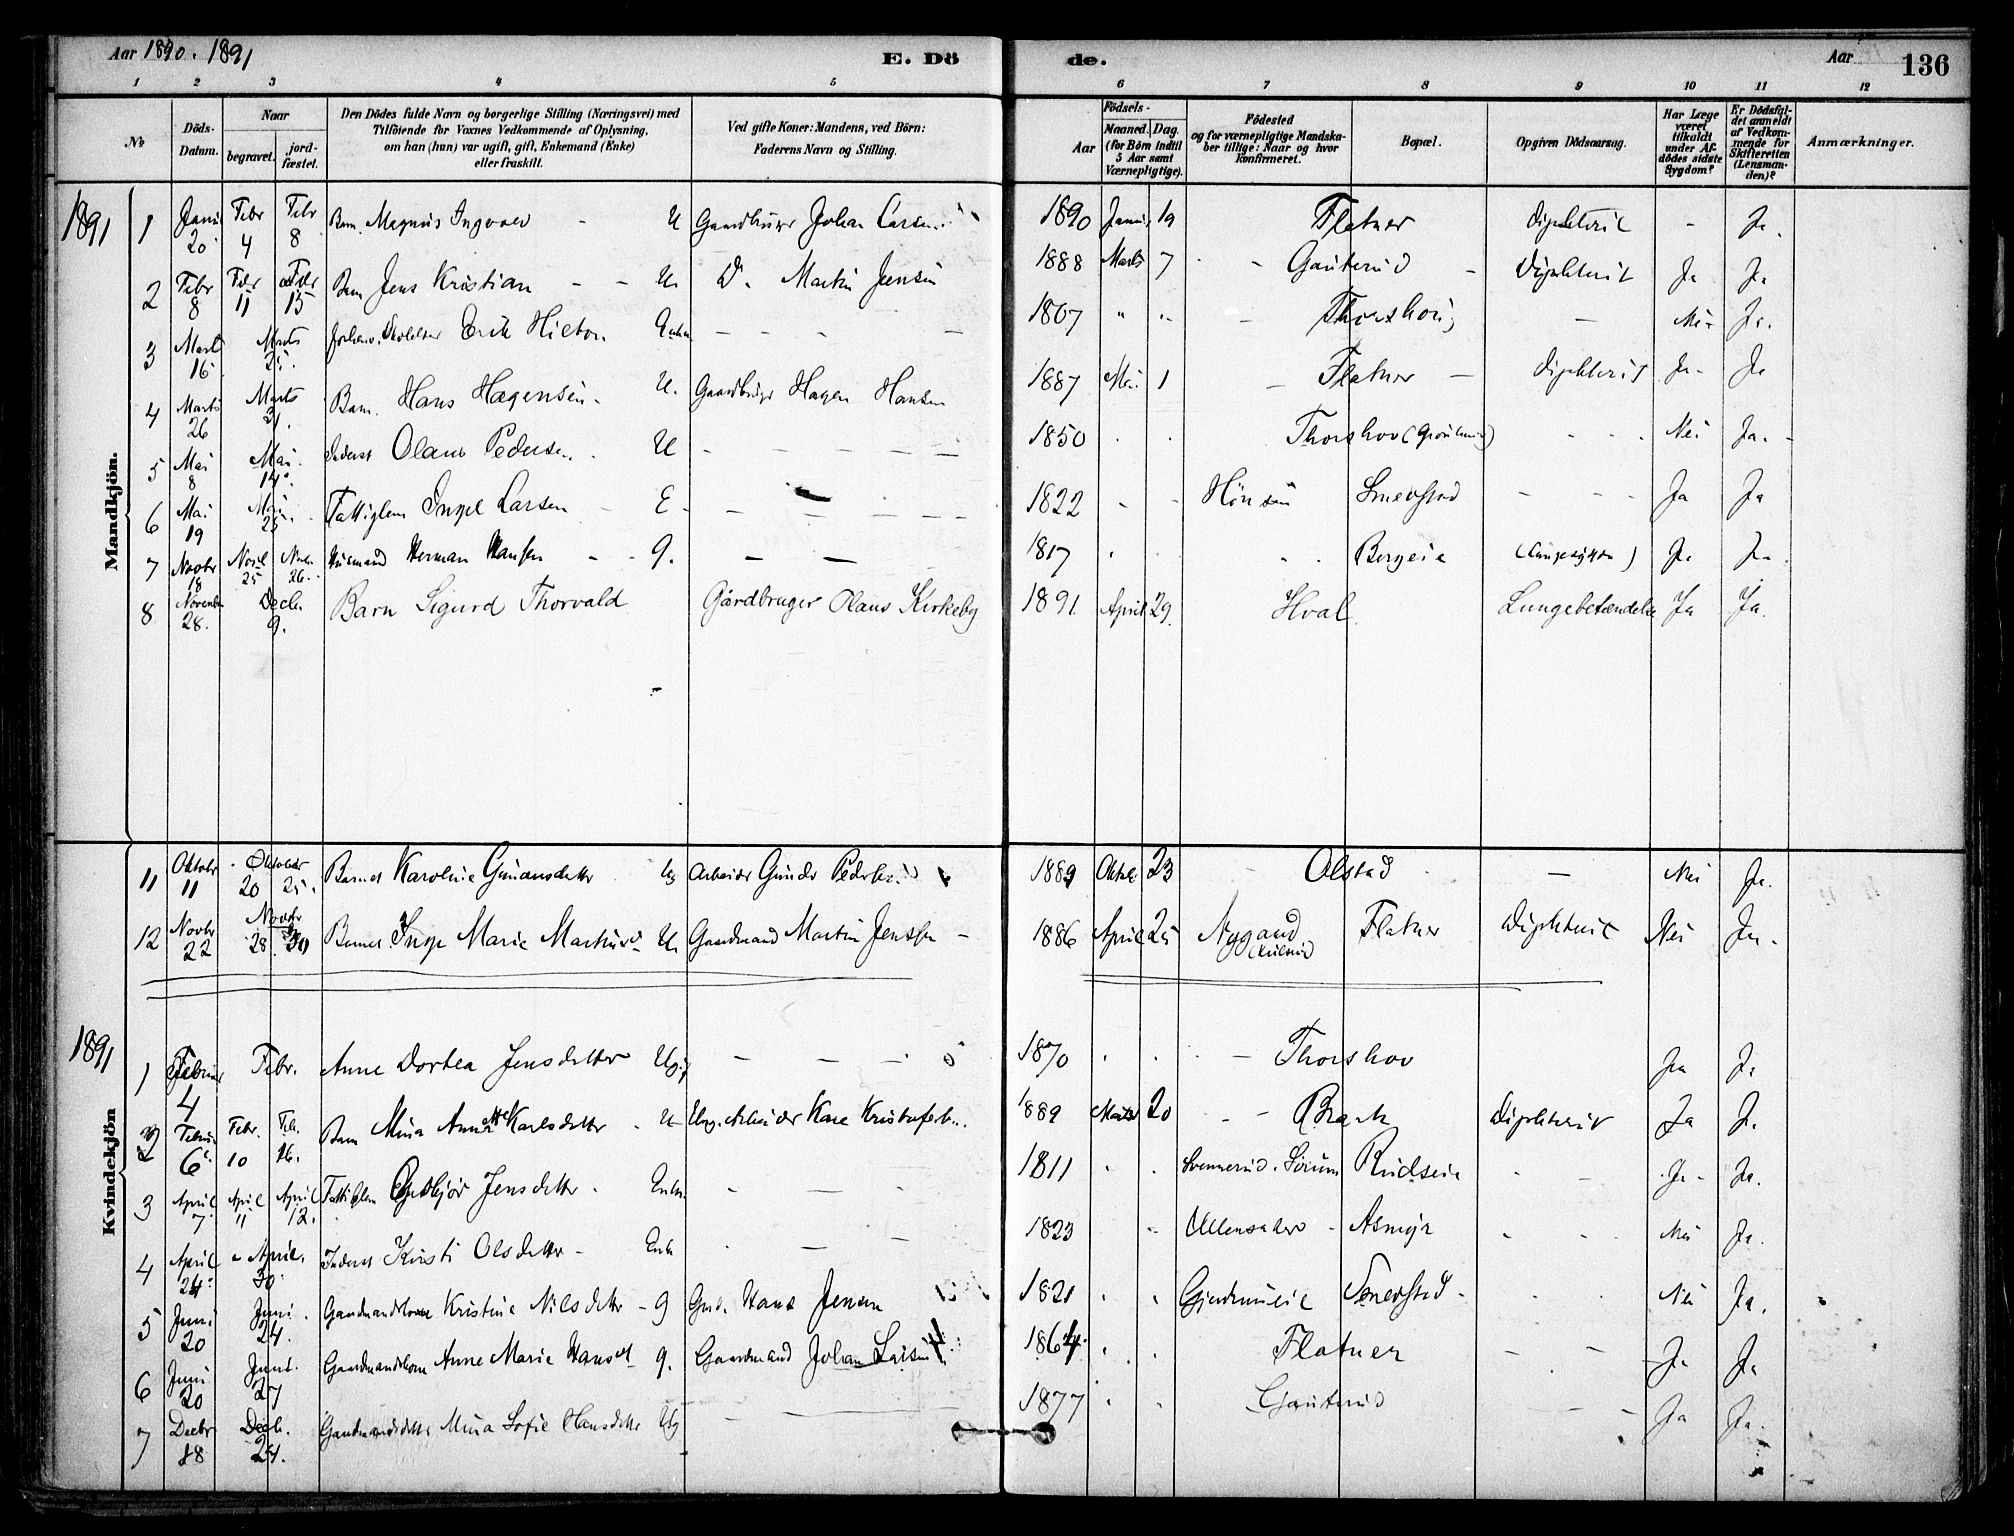 Aar 1890. 1891 E. Dö de. Aar 136
1 2 3 4 5 6 7 8 9 10 11 12
No Döds-Datum. Naar begravet. jord-fæstet. Den Dödes fulde Navn og borgerlige Stilling (Næringsvei) med Tilföiende for Voxnes Vedkommende af Oplysning, om han (hun) var ugift, gift, Enkemand (Enke) eller fraskilt. Ved gifte Koner: Mandens, ved Börn: Faderens Navn og Stilling. Födsels- Aar Maaned. Dag. (for Börn indtil 5 Aar samt Værnepligtige). Födested og for værnepligtige Mandskaber tillige: Naar og hvor Konfirmeret. Bopæl. Opgiven Dödsaarsag. Har Læge været tilkaldt under Afdödes sidste Sygdom? Er Dödsfaldet anmeldt af Vedkommende for Skifteretten (Lensmanden)? Anmærkninger.
Mandkjön.
1891 1 Janu 20 Febr 4 Febr 8 Barn Magnus Ingvald - U Gaardbruger Johan Larsen 1890 Janu 19 Flatner Diphterit - Ja.
2 Febr 8 Febr 11 Febr 15 Barn Jens Kristian - - U. Do. Martin Jensen 1888 Marts 7 - Gauterud - Diphterit Ja Ja
3 Marts 16 Marts 25. Erik Enkm - - - 1807 " " - Thorshoug - Nei Ja.
4 Marts 26 Marts 31. Barn. Hans Hagensen. U. Gaardbruger Hagen Hansen 1887 Mai 1 - Flatner - Diphterit Ja - Ja
5 Mai 8 Mai 14. Inderst Olaus Pedersen. U - - - - 1850 Thorshov - - - Nei Ja. -
6 Mai 19 Mai 25 Fattiglem Inge Larsen - E - - - - 1822 - - Hönsen Smedstad - - - Ja Ja
7 Novbr 18 Novb 25 Novbr 26. Husmand Herman Hansen - - g. - - 1817 Bergeie Ja. Ja
8 Novembr 28. Decb. 9. Barn Sigurd Thorvald Gårdbruger Olaus Kirkeby 1891. April 29. Hval Lungebetændelse Ja Ja.
Kvindekjön
11 Oktobr 11 Oktober 20 25. Barnet Karoline Gunansdatter Ug Arbeider Gunder Pedersen 1889 Oktbr 23 - Olstad - Nei Ja.
12 Novbr 22 Novbr 28 30 Barnet Inge Marie Martinsd. U. Gaardmand Martin Jenssen - 1886 April 25 Nygaard Flatner Diphterit Nei Ja.
1891 1 Februar 4 Febr. Anne Dortea Jensdatter Ugif - - - 1870 - Thorshov Ja Ja
2 Februar 6 Febr. 10 Feb. 16. Barn Mina Annette Karlsdatter - U Ung. Arbeider Karl Kristofersen. 1889 Marts 20 - - Braate Diphterit Ja Ja.
3 April 7 April 11 April 12. Fattiglem Jensdatter. Enke - - - 1811 Svennerud. Sörum Rudseie - - Ja - Ja.
4 April 24 April. 30 Inderst Kirsti Olsdatter - Enke - - - 1823 " Ullensaker - Asmyr Nei Ja.
5 Juni 20 Juni. 24. Gaardmandskone Kristine Nilsdatter - g Gmd. Hans Jensen 1821 Gjerdrum Smedstad - Nei Ja.
6 Juni 20 Juni. 27 Gaardmandskone Anne Marie Hansd. g. Gaardmand Johan Larsen 1864. Flatner - - Ja Ja
7 Decbr 18 Decb. 24. Gaardmandsdatter Mina Sofie Hansdatter Ug - - - 1877 Gauterud - - Ja Ja.